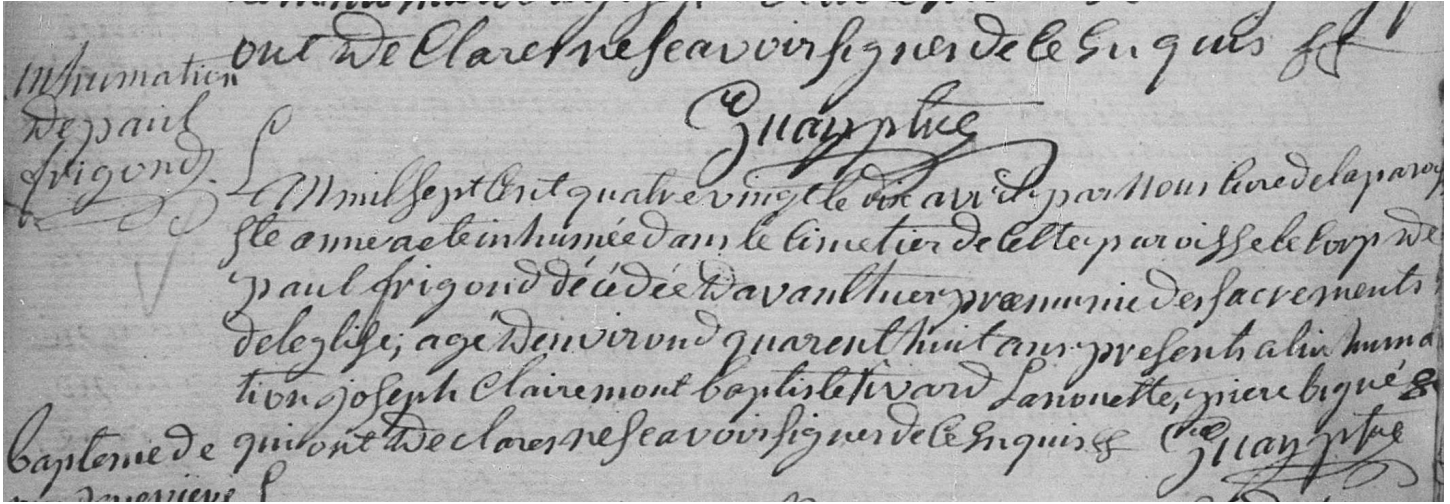 ont declarer ne scavoir signer de ce enquis
inhumation
de paul
frigond
ptre
L'an mil sept cent quatre vingt le dix avril par nous curé de la parois
ste anne a eté inhumée dans le cimetier de cette paroisse le corp de
paul frigond décédée d'avanthier præmunie des sacrements
de l'eglise; agé d'environd quarent huit ans presents a lin huma
tion joseph Clairemont baptiste tivard Lanouette, piere biqué &
qui ont declarer ne scavoir signer de ce enquis ptre
baptemede
genevieve